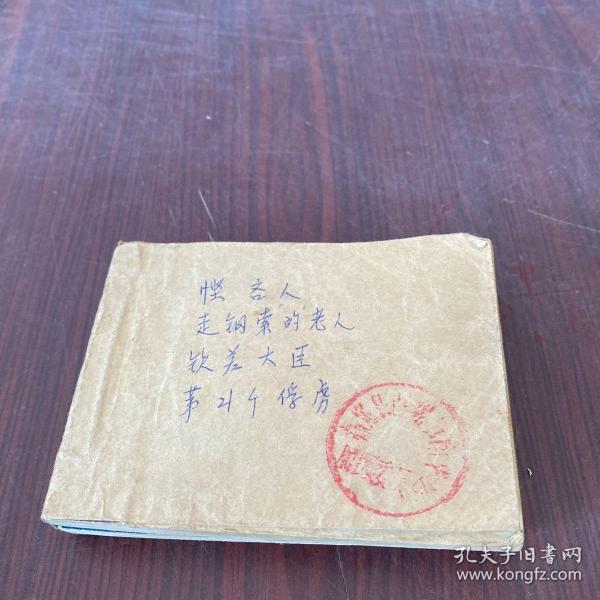 悭吝人
走钢索的老人
钦差大臣
第21个俘虏
孔夫子旧书网
www.kongfz.com